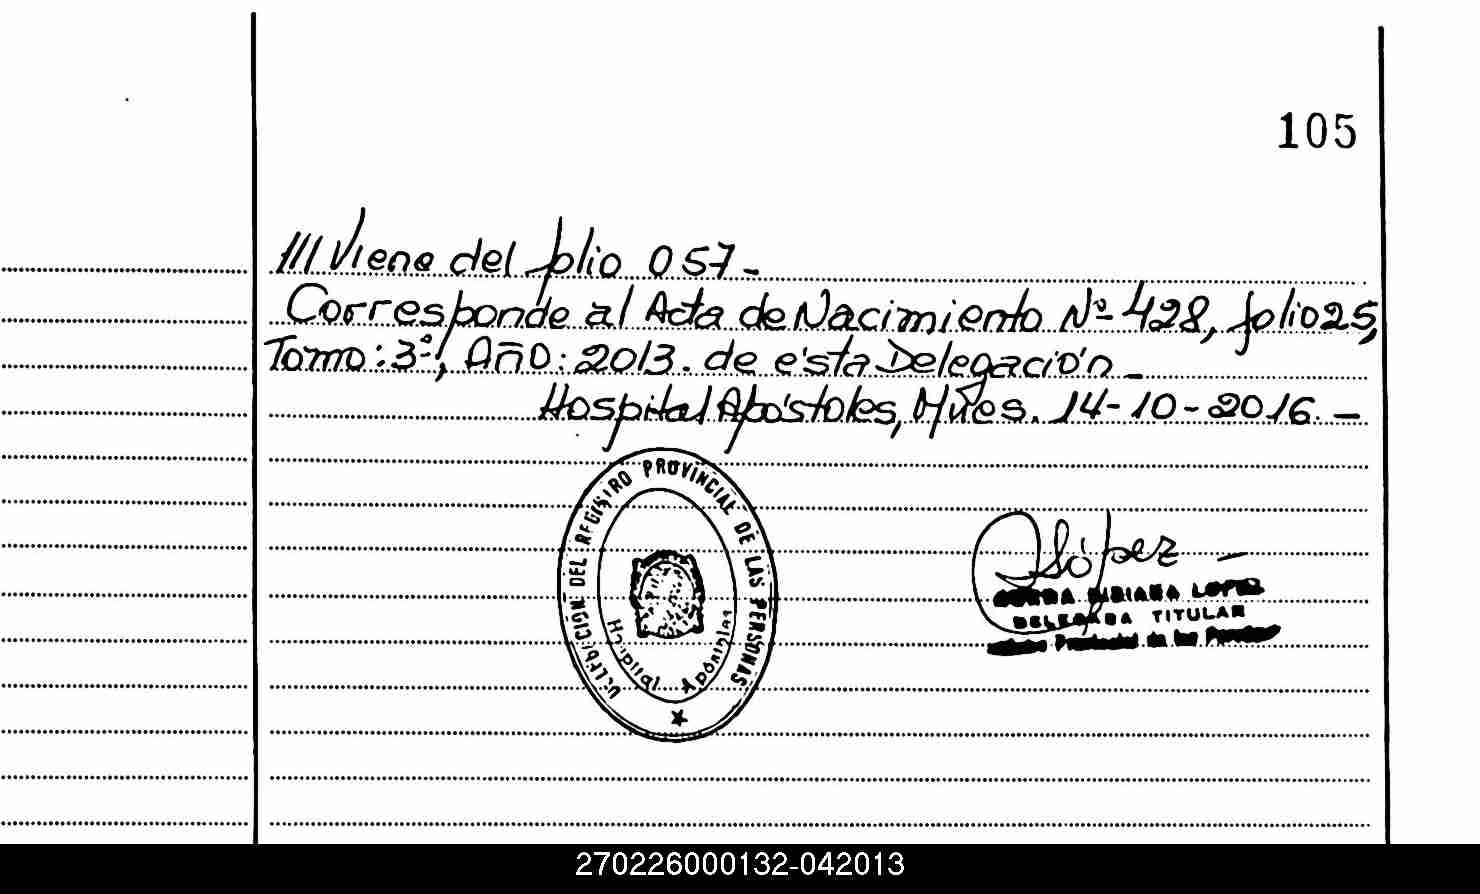 105
/// Viene del folio 057-
Corresponde al Acta de Nacimiento Nº 428, folio 25,
Tomo: 3º, Año: 2013. de ésta Delegación-
Hospital Apóstoles, Mnes. 14-10-2016.-
DEL REGISTRO PROVINCIAL DE LAS PERSONAS
Hospital Apóstoles
López -
BIBIANA LOPEZ
DELEGADA TITULAR
Provincial de las Personas
270226000132-042013